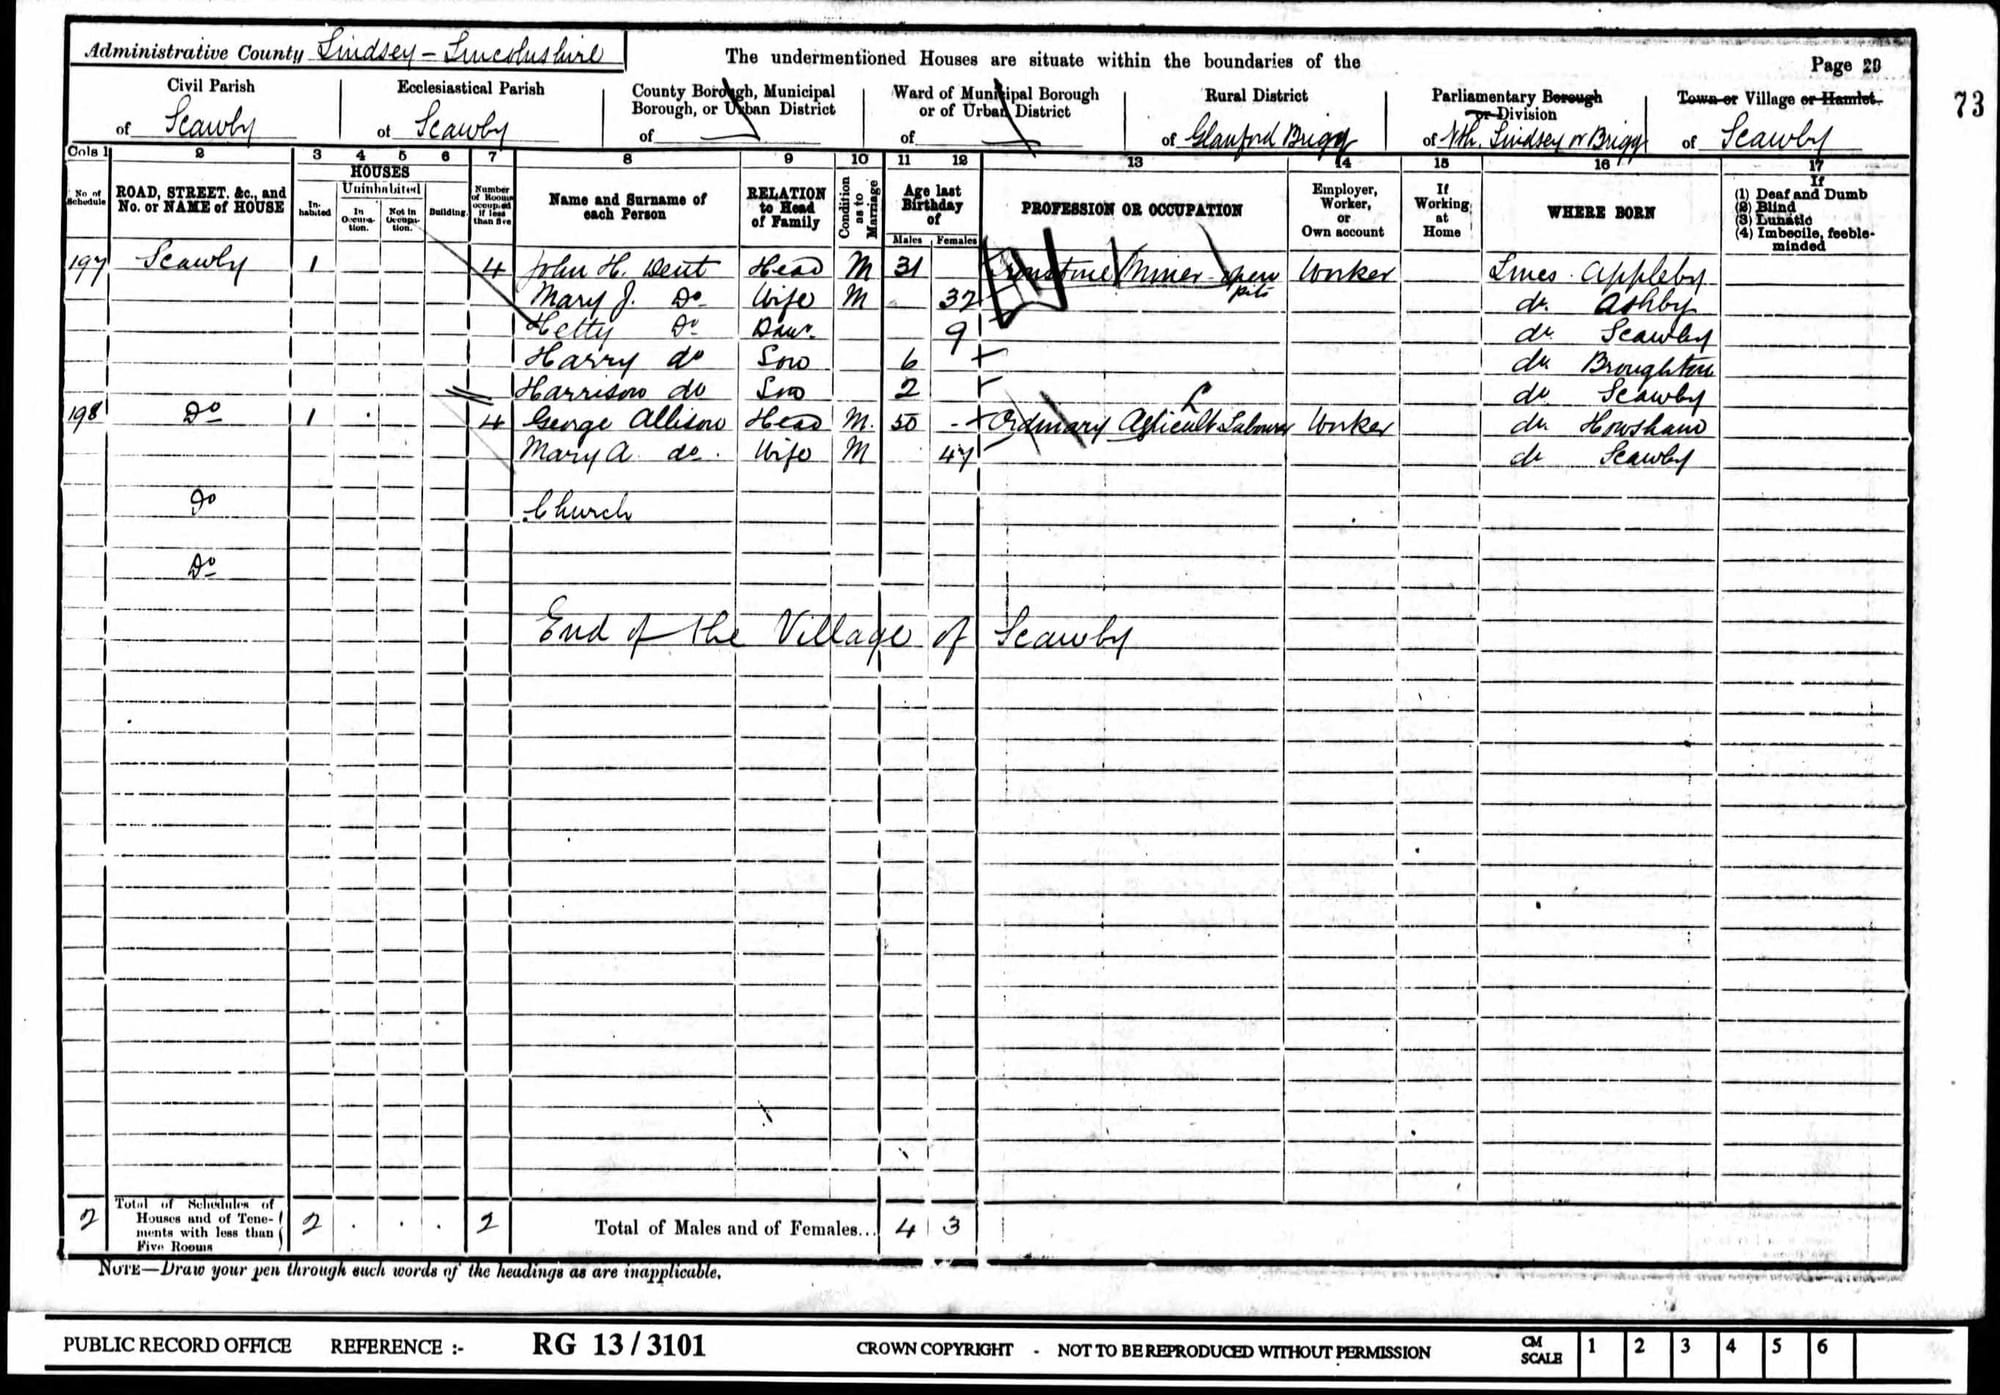 Administrative County Lindsey - Lincolnshire
The undermentioned Houses are situate within the boundaries of the
Page 20
73
Civil Parish of Scawby
Ecclesiastical Parish of Scawby
County Borough, Municipal Borough, or Urban District of
Ward of Municipal Borough or of Urban District of
Rural District of Glanford Brigg
Parliamentary Borough or Division of Nth. Lindsey or Brigg
Town or Village or Hamlet of Scawby
Cols 1 2 3 4 5 6 7 8 9 10 11 12 13 14 15 16 17
No of Schedule
ROAD, STREET, &c., and No. or NAME of HOUSE
HOUSES
Inhabited
Uninhabited
In Occupation.
Not in Occupation.
Building.
Number of Rooms occupied if less than five
Name and Surname of each Person
RELATION to Head of Family
Condition as to Marriage
Age last Birthday of
Males Females
PROFESSION OR OCCUPATION
Employer, Worker, or Own account
If Working at Home
WHERE BORN
If
(1) Deaf and Dumb
(2) Blind
(3) Lunatic
(4) Imbecile, feeble-minded
197 Scawby 1 4 John H. Dent Head M 31 Ironstone Miner open pits Worker Lincs. Appleby
Mary J. Do Wife M 32 do Ashby
Hetty Do Daur. 9 do Scawby
Harry do Son 6 do Broughton
Harrison do Son 2 do Scawby
198 Do 1 4 George Allison Head M. 50 Ordinary Agricult Labourer Worker do Howsham
Mary A do. Wife M 47 do Scawby
Do Church
Do
End of the Village of Scawby
2 Total of Schedules of Houses and of Tenements with less than Five Rooms 2 . . . 2 Total of Males and of Females... 4 3
NOTE—Draw your pen through such words of the headings as are inapplicable.
PUBLIC RECORD OFFICE REFERENCE :- RG 13 / 3101 CROWN COPYRIGHT - NOT TO BE REPRODUCED WITHOUT PERMISSION CM SCALE 1 2 3 4 5 6